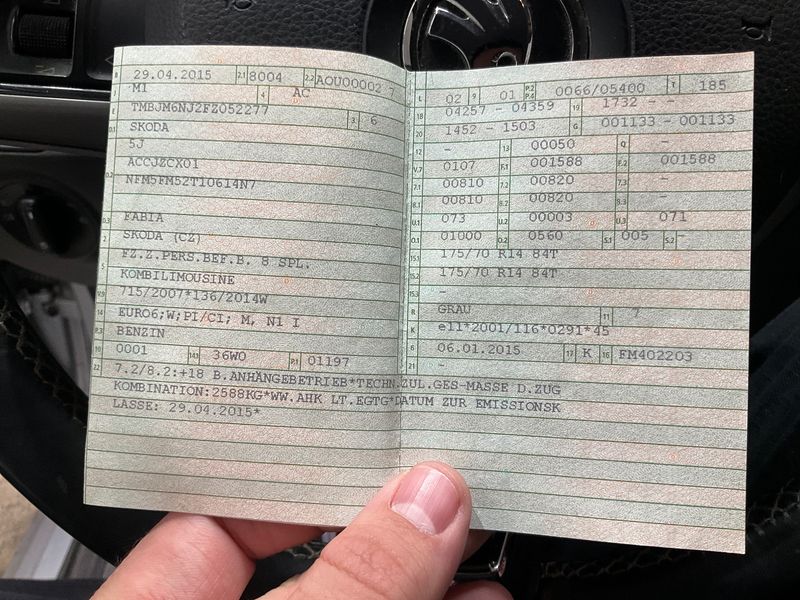 B 29.04.2015 2.1 8004 2.2 AOU00002 7
J M1 4 AC
E TMBJM6NJ2FZ052277 3 6
D.1 SKODA
5J
D.2 ACCJZCX01
NFM5FM52T10614N7
D.3 FABIA
2 SKODA (CZ)
5 FZ.Z.PERS.BEF.B. 8 SPL.
KOMBILIMOUSINE
V.9 715/2007*136/2014W
14 EURO6;W;PI/CI; M, N1 I
P.3 BENZIN
10 0001 14.1 36W0 P.1 01197
22 7.2/8.2:+18 B.ANHÄNGEBETRIEB*TECHN.ZUL.GES-MASSE D.ZUG
KOMBINATION:2588KG*WW.AHK LT.EGTG*DATUM ZUR EMISSIONSK
LASSE: 29.04.2015*
L 02 9 01 P.2 P.4 0066/05400 T 185
18 04257 - 04359 19 1732 - -
20 1452 - 1503 G 001133 - 001133
12 - 13 00050 Q -
V.7 0107 F.1 001588 F.2 001588
7.1 00810 7.2 00820 7.3 -
8.1 00810 8.2 00820 8.3 -
U.1 073 U.2 00003 U.3 071
O.1 01000 O.2 0560 S.1 005 S.2 -
15.1 175/70 R14 84T
15.2 175/70 R14 84T
15.3 -
R GRAU 11 7
K e11*2001/116*0291*45
6 06.01.2015 17 K 16 FM402203
21 -